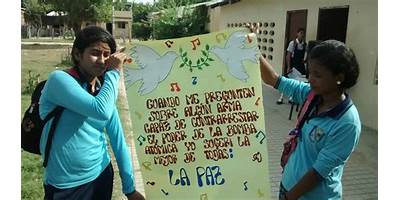 CUANDO ME PREGUNTEN
SOBRE ALGUN ARMA
CAPAZ DE CONTRARRESTAR
EL PODER DE LA BOMBA
ATOMICA YO SUGERI LA
MEJOR DE TODAS:
LA PAZ